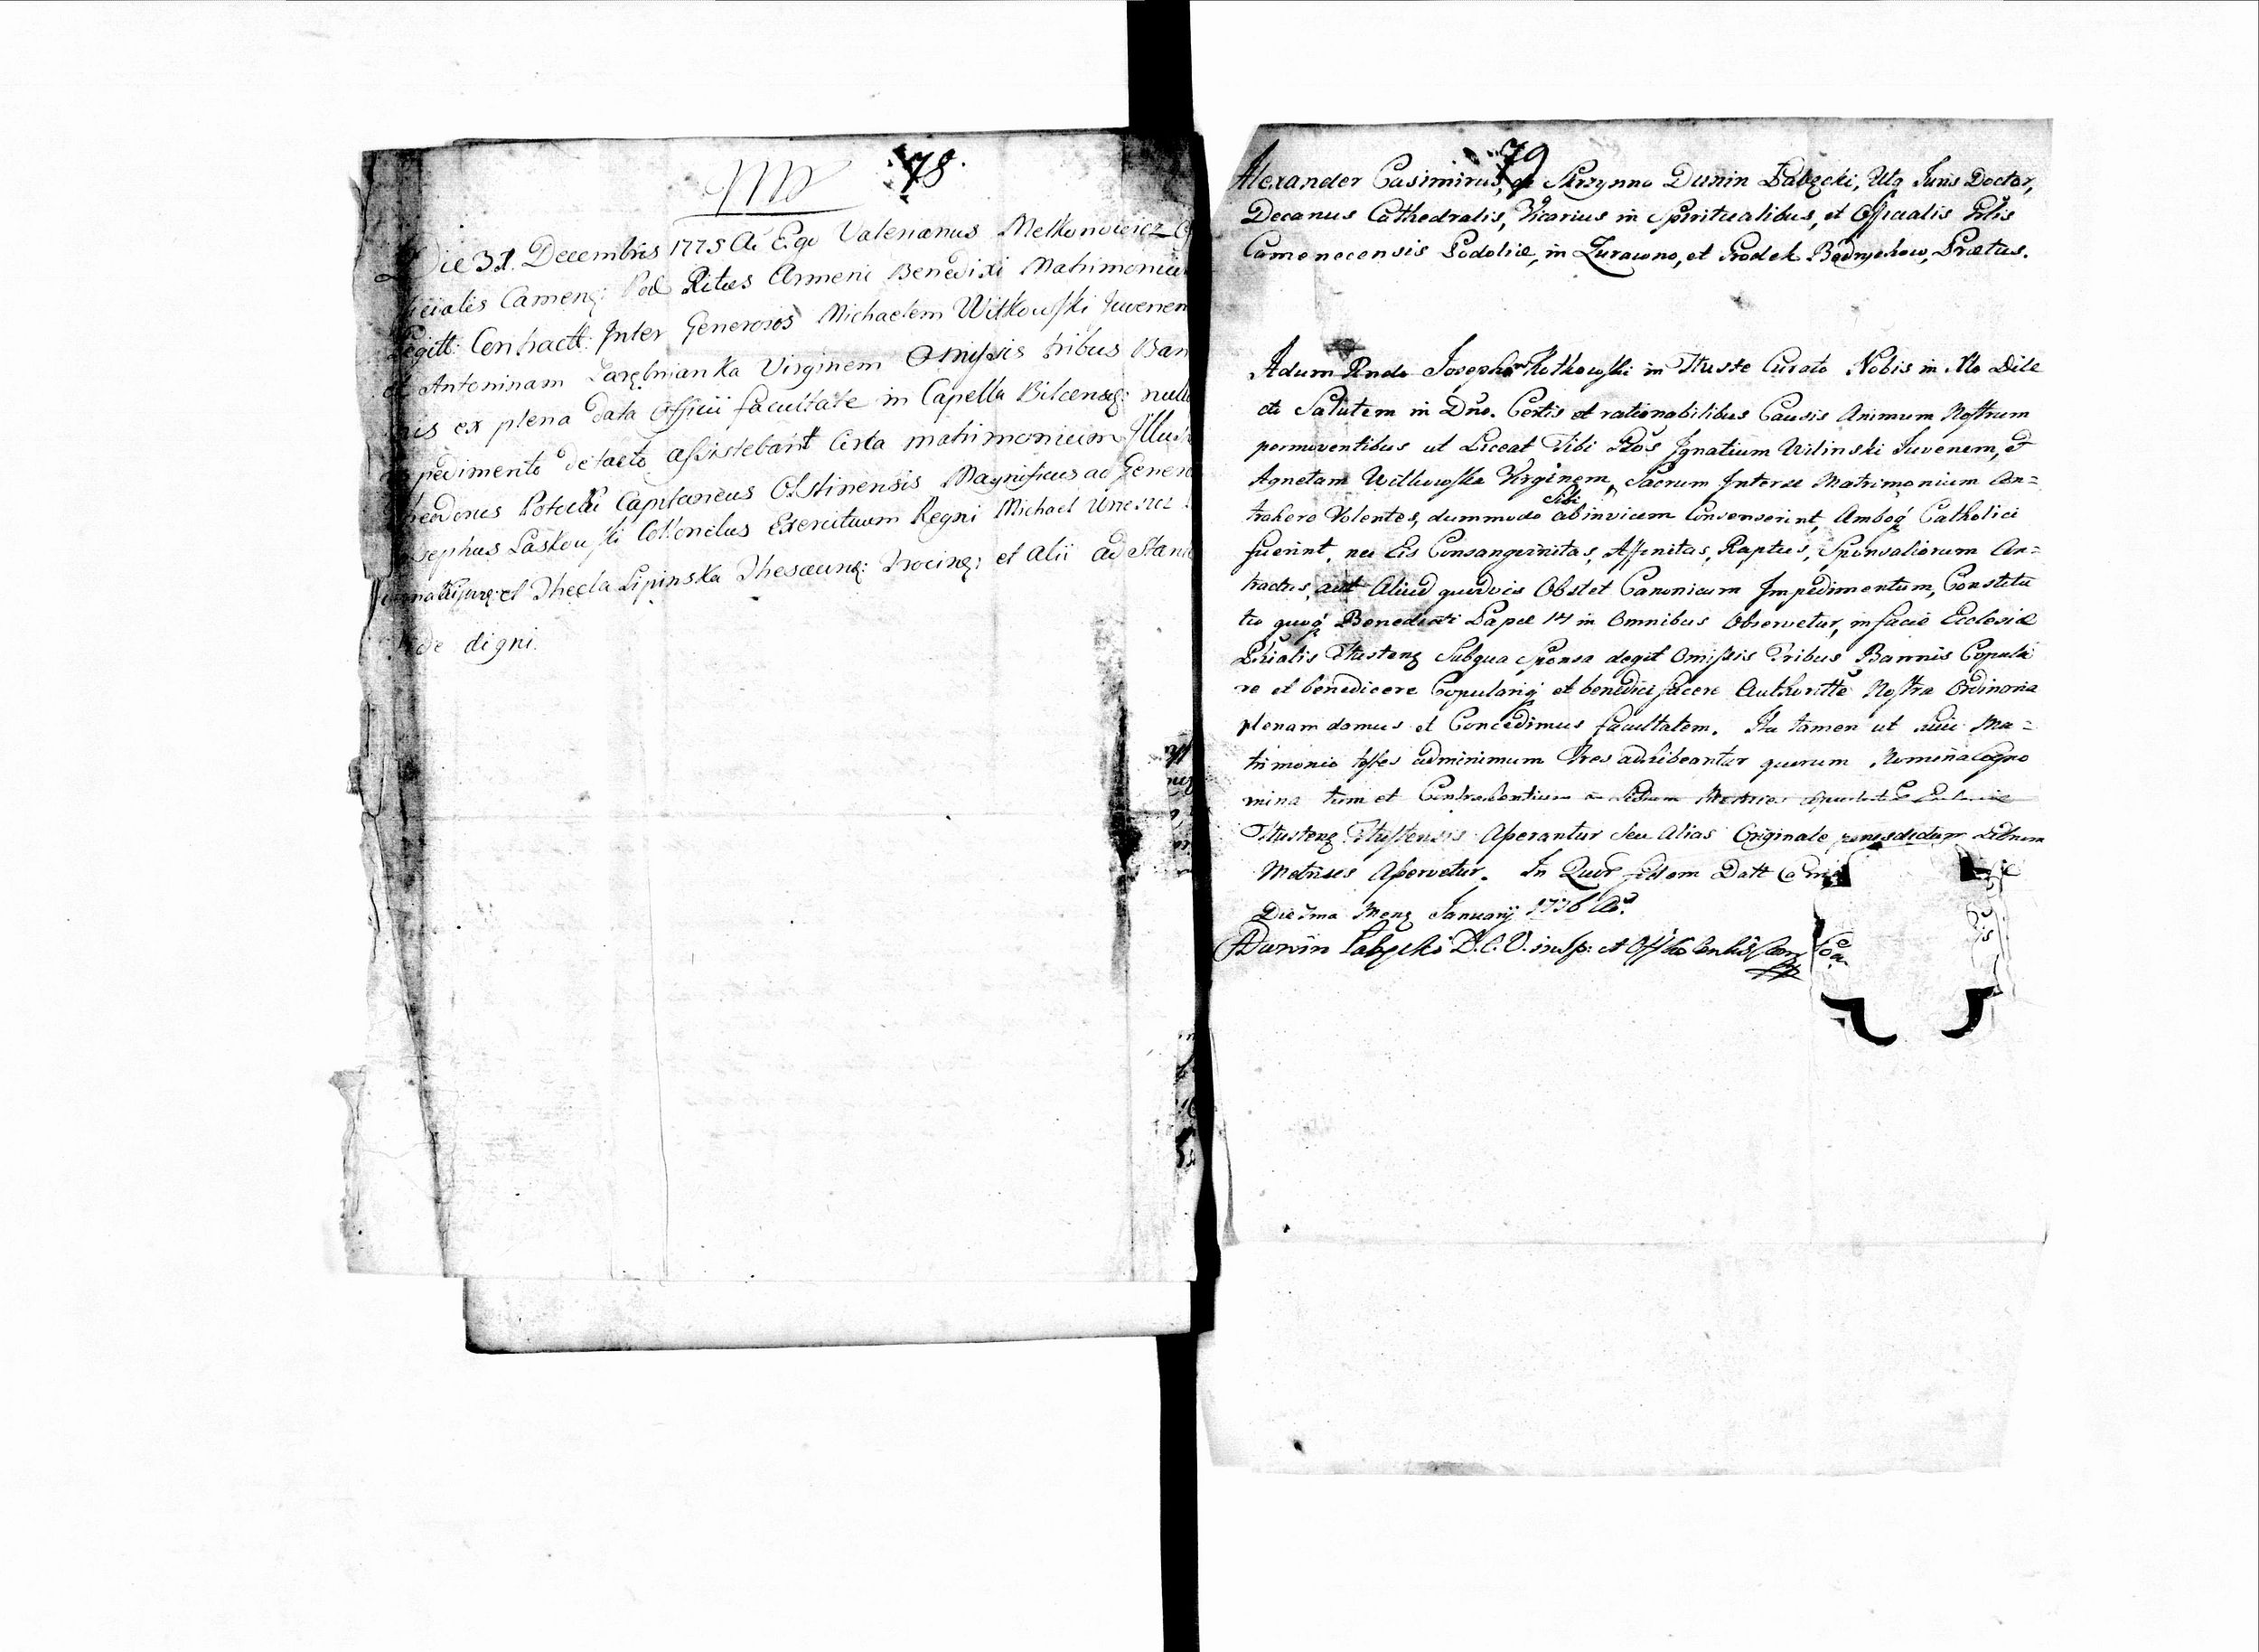 78.
Die 31. Decembris 1775 Aō Ego Valerianus Melkonowicz
icialis Camenę: Pod Ritus Armeni Benedixi Matrimoniu
Legitt: Contractt: Inter Generosos Michaelem Witkowski Juvenem
et Antoninam Virginem Omissis tribus Ban
nis ex plena data Officii facultate in Capella Bilcensę: null
impedimento detecto assistebant Circa matrimonium Illust
Theodorus Potocki Capitaneus Olstinensis Magnificus ac Genero
Josephus Laskowski Collonelus Exercituum Regni Michael
et Thecla Lipinska Thesaurę: et alii ad Stan
fide digni.
79
Alexander Casimirus, de Skrzynno Dunin Łabęcki, Utq Juris Doctor,
Decanus Cathedralis, Vicarius in Spiritualibus, et Officialis Gñlis
Camenecensis Podoliæ, in Zurawno, et Prætus.
Adum Rndo Josepho in Ttuste Curato Nobis in Xto Dile
cto Salutem in Dño. Certis et rationabilibus Causis Animum Nostrum
permoventibus ut Liceat Tibi Gños Ignatium Wilinski Juvenem, et
Agnetam Witkowska Virginem, Sacrum Inter se Matrimonium Con=
trahere Volentes, dummodo Sibi abinvicem Consenserint, Amboq Catholici
fuerint, nec Eis Consanguinitas, Affinitas, Raptus, Sponsaliorum Con=
tractus, aut Aliud quodvis Obstet Canonicum Impedimentum, Constitu
tio quoq Benedicti Papæ 14 in Omnibus Observetur, in facie Ecclesiæ
Pchialis Ttustenę Subqua Sponsa degit Omissis Tribus Bannis Copula
re et benedicere Copulariq et benedici facere Authoritte Nostra Ordinaria
plenam damus et Concedimus facultatem. Ita tamen ut huic Ma=
trimonio testes adminimum tres adhibeantur quorum Nomina Cogno
mina tum et Contrahentium in Librum Metrices
Ttustenę Asserantur Seu Alias Originale penes dictum Librum
Metrices Asservetur. In Quor fidem Datt
Die 3ma Menę Januarij 1776 Aō.
ADunin Łabęcki D. C. V. in sp: et Off